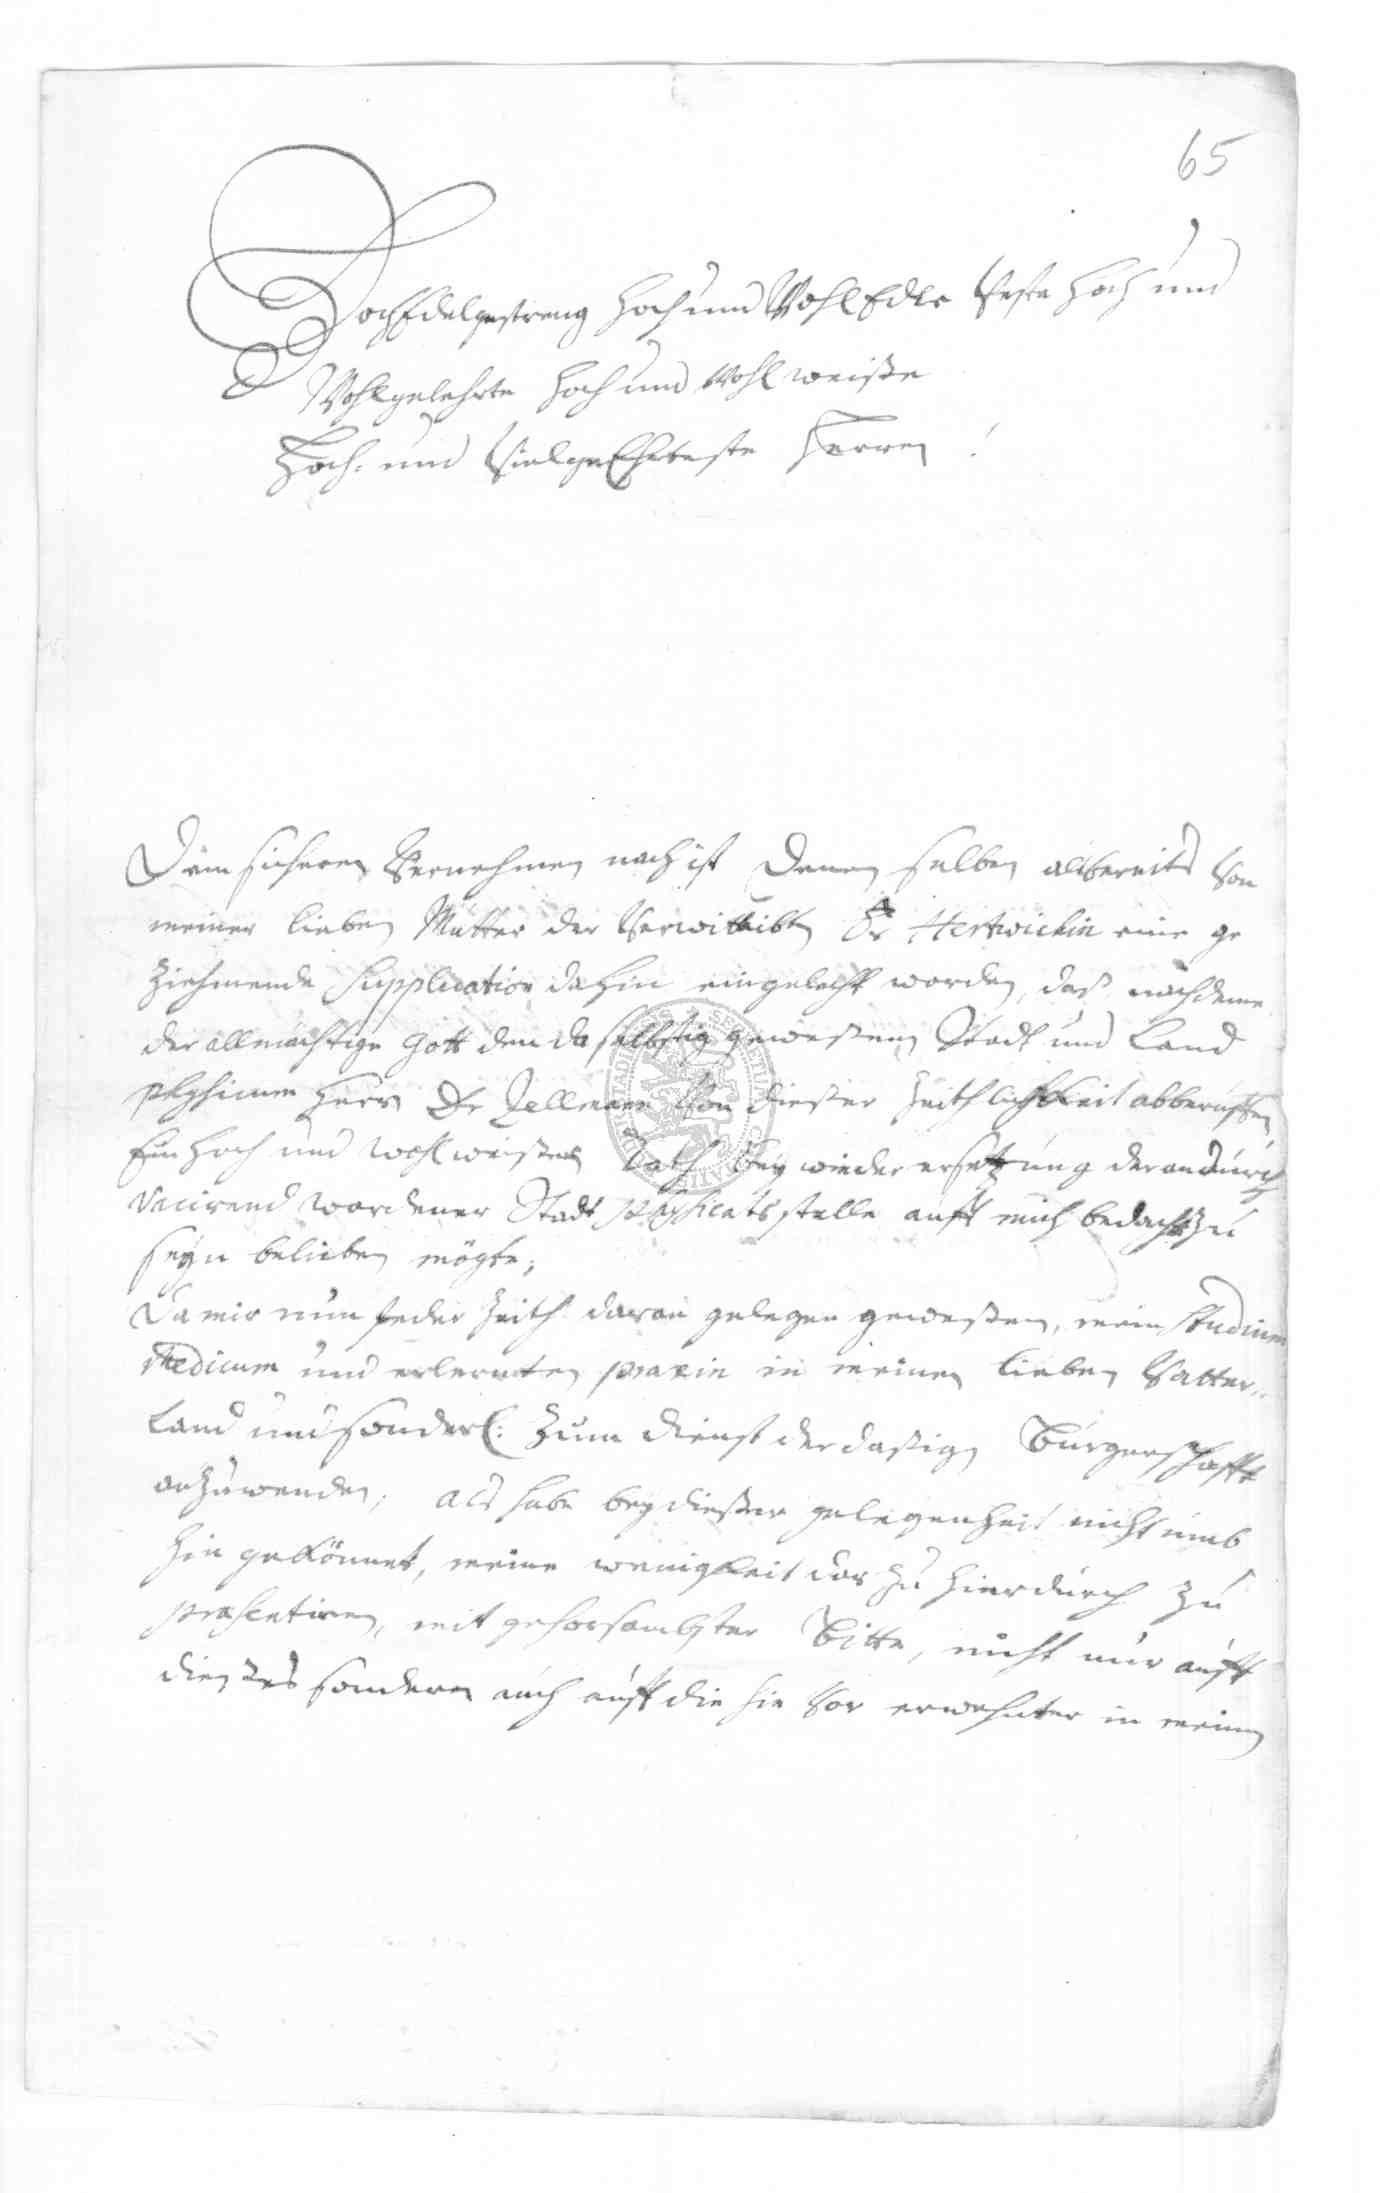 65
HochEdelgestreng Hoch und WohlEdle Veste Hoch und
Wohlgelehrte Hoch und Wohl weiße
Hoch- und VielgeEhrteste Herren!
Dem sicheren Vernehmen nach ist Denen selben albereits von
meiner lieben Mutter der Verwittibten Dr Hertwichin eine ge
ziehmende Supplication dahin eingelegt worden, daß nachdeme
der allmächtige Gott den daselbstig gewesenen Stadt und Land
physicum Herrn Dr Zellmann von dießer Zeithlichkeit abberuffen
Ein Hoch und wohl weißer Rath bey wieder ersetzung der andurch
vacirend wordener Stadt physicats stelle auff mich bedacht zu
seyn belieben mögte;
Da mir nun jeder Zeith daran gelegen gewesen, mein Studium
Medicum und erlernten praxin in meinem lieben Vatter-
Land und sonderl: zum dienst der dasigen Burgerschafft
anzuwenden; als habe bey dießer gelegenheit nicht umb
hin gekönnet, meine wenigkeit dar zu hierdurch zu
præsentiren, mit gehorsambster Bitte, nicht nur auff
dießes sondern auch auff die hie vor erwehnter in meiner